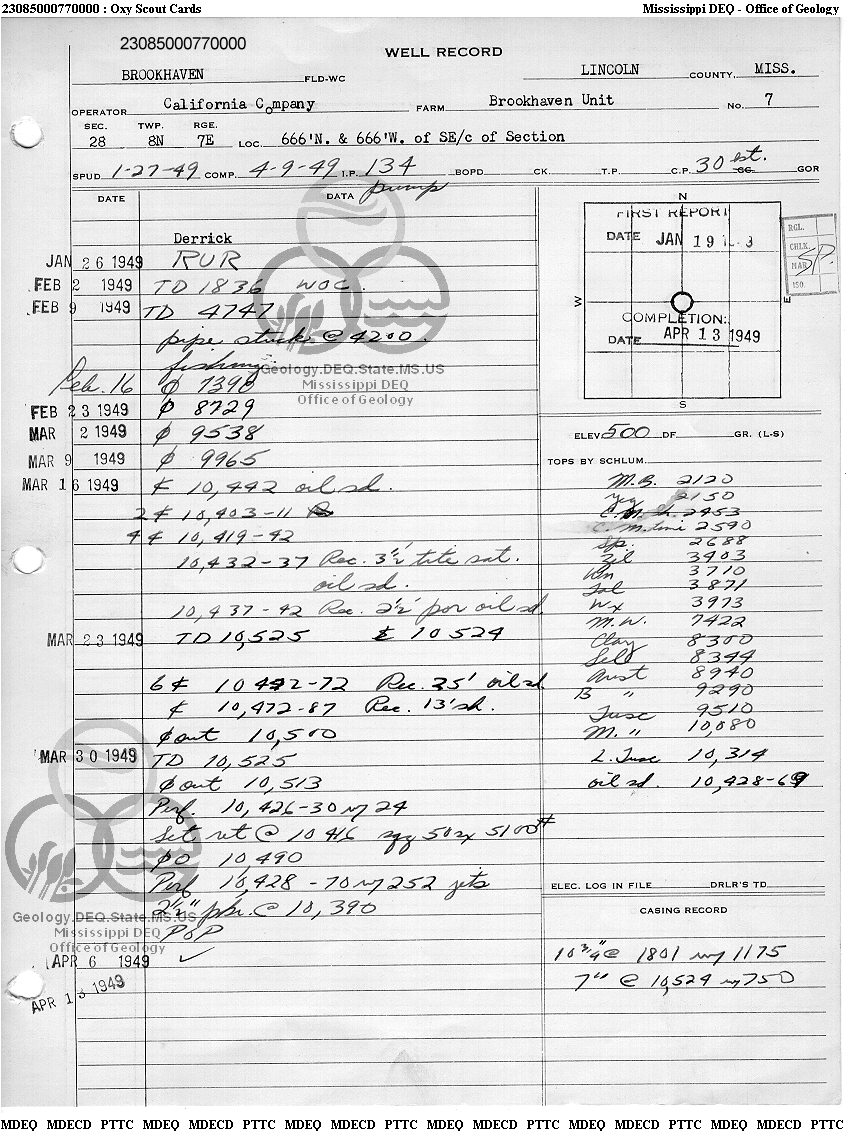 23085000770000 : Oxy Scout Cards Mississippi DEQ - Office of Geology
23085000770000
WELL RECORD
BROOKHAVEN FLD-WC LINCOLN COUNTY, MISS.
OPERATOR California Company FARM Brookhaven Unit No. 7
SEC. TWP. RGE.
28 8N 7E LOC. 666'N. & 666'W. of SE/c of Section
SPUD 1-27-49 COMP. 4-9-49 I.P. 134 BOPD CK. T.P. C.P. 30 est. GOR
pump
DATE DATA
Derrick
JAN 26 1949 RUR
FEB 2 1949 TD 1836 WOC.
FEB 9 1949 TD 4747
pipe stuck @ 4200.
fishing
Feb. 16 ⌀ 7390
FEB 23 1949 ⌀ 8729
MAR 2 1949 ⌀ 9538
MAR 9 1949 ⌀ 9965
MAR 16 1949 ₵ 10,442 oil sd.
2 ₵ 10,403-11
4 ₵ 10,419-42
10,432-37 Rec. 3½' tite sat.
oil sd.
10,437-42 Rec. 2½' por oil sd.
MAR 23 1949 TD 10,525 10524
6 ₵ 10442-72 Rec. 25' oil sd.
₵ 10,472-87 Rec. 13' sh.
⌀ out 10,500
MAR 30 1949 TD 10,525
⌀ out 10,513
Perf. 10,426-30 w/ 24
Set ret @ 10416 sqz 50 sx 5100#
⌀O 10,490
Perf 10,428-70 w/ 252 jets
2½" pkr. @ 10,390
POP
APR 6 1949 ✓
APR 13 1949
N
FIRST REPORT
DATE JAN 19
W E
COMPLETION:
DATE APR 13 1949
S
RGL.
CHLK.
MAR SP.
ISO.
ELEV 500 DF GR. (L-S)
TOPS BY SCHLUM.
M.B. 2120
2150
C. M. 2453
C. M. lime 2590
Sp. 2688
Zil 3403
Kin 3710
Sal 3871
Wx 3973
M.W. 7422
Clay 8300
Sel 8344
Aust 8940
B " 9290
Tusc 9510
M. " 10,080
L. Tusc 10,314
oil sd. 10,428-69
ELEC. LOG IN FILE DRLR'S TD
CASING RECORD
10¾" @ 1801 w/ 1175
7" @ 10,524 w/ 750
Geology.DEQ.State.MS.US
Mississippi DEQ
Office of Geology
Geology.DEQ.State.MS.US
Mississippi DEQ
Office of Geology
MDEQ MDECD PTTC MDEQ MDECD PTTC MDEQ MDECD PTTC MDEQ MDECD PTTC MDEQ MDECD PTTC MDEQ MDECD PTTC